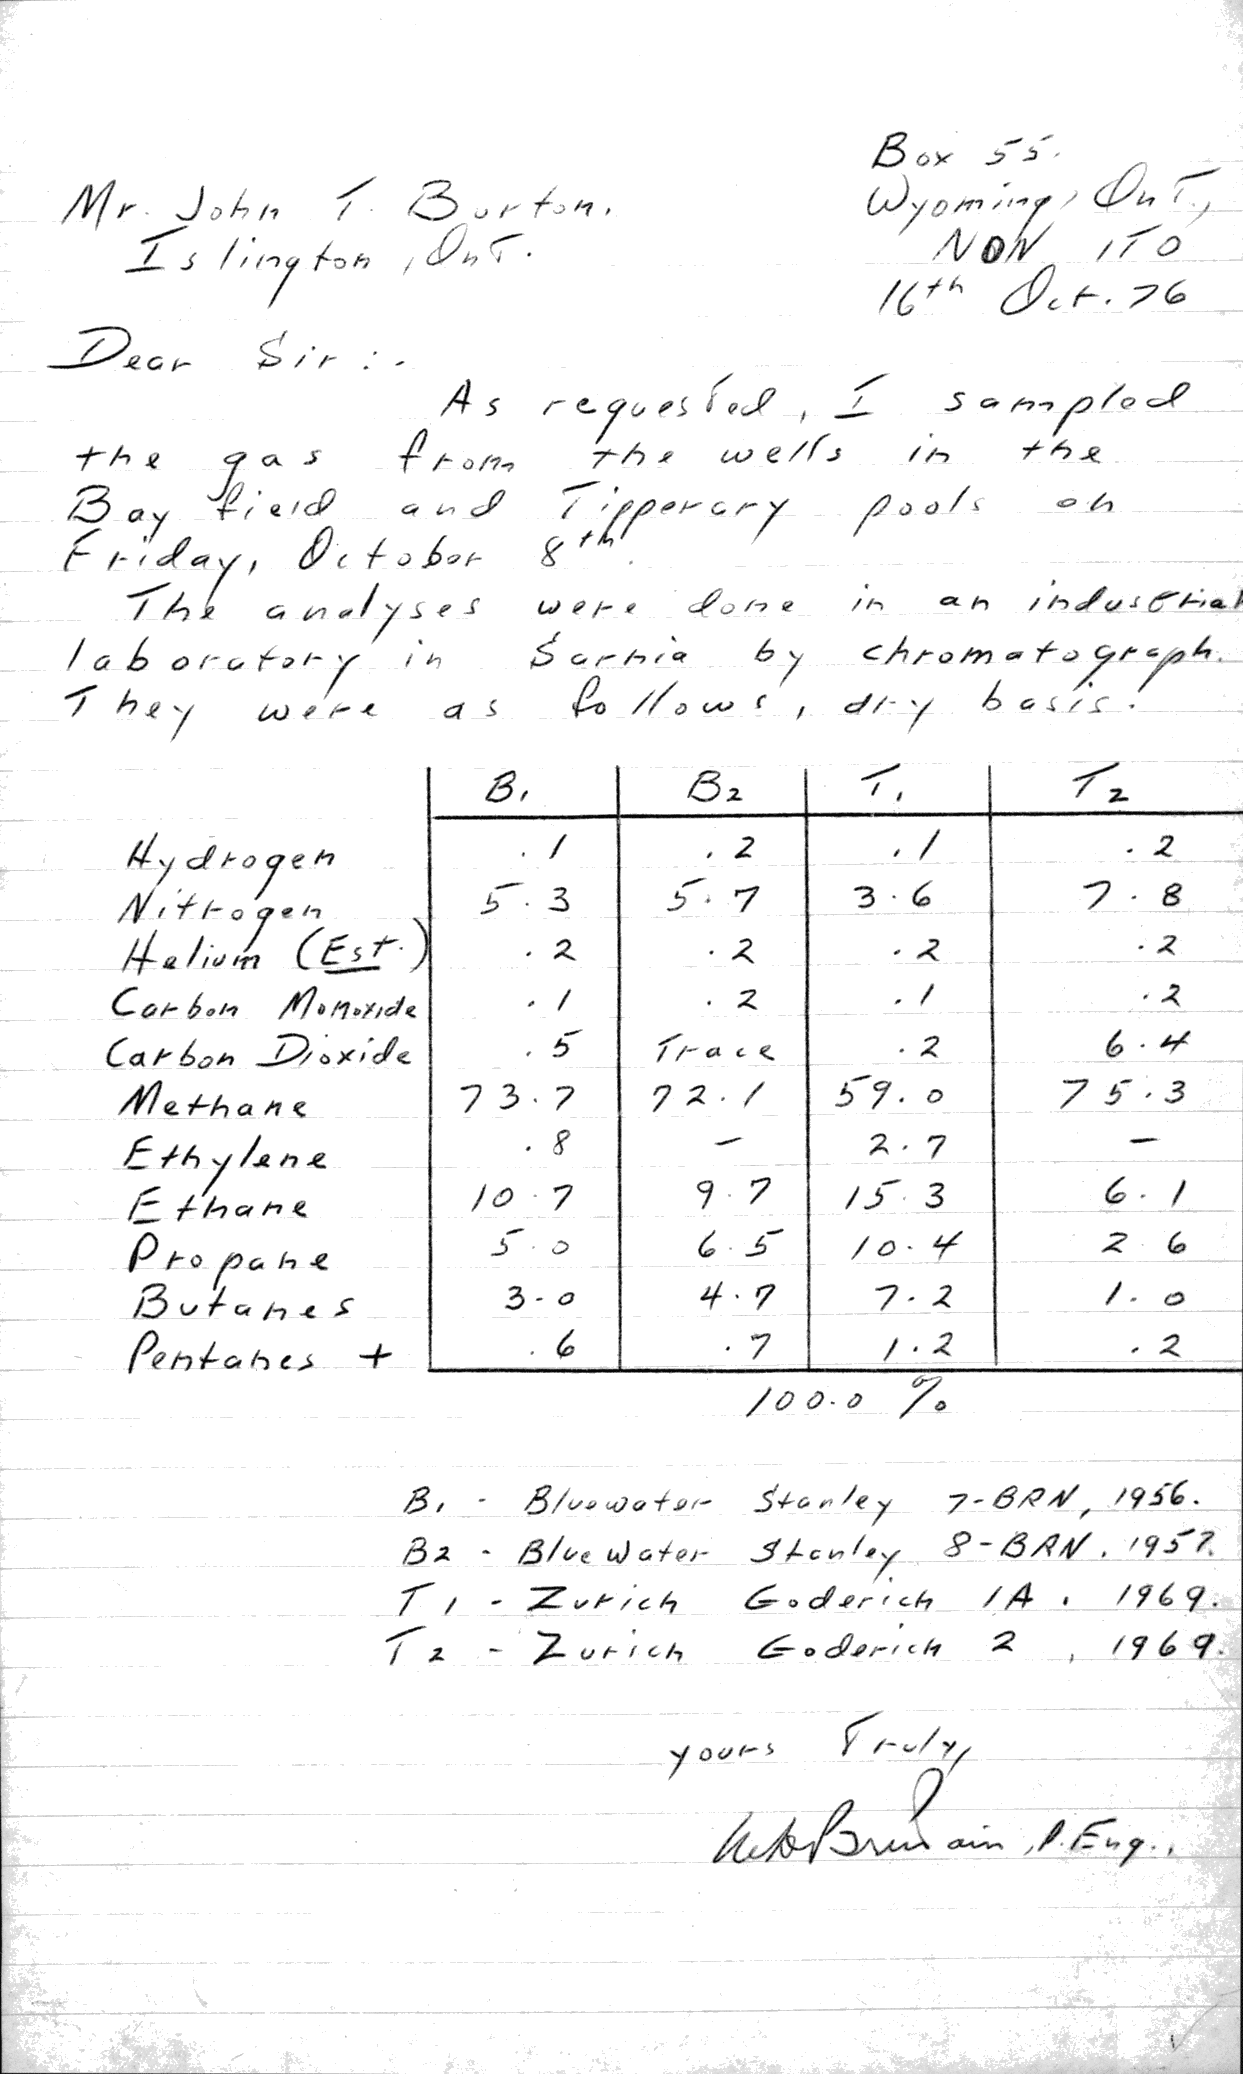 Box 55.
Wyoming, Ont.,
N0N 1T0
16th Oct. 76
Mr. John T. Burton.
Islington, Ont.
Dear Sir:-
As requested, I sampled
the gas from the wells in the
Bayfield and Tipperary pools on
Friday, October 8th.
The analyses were done in an industrial
laboratory in Sarnia by chromatograph.
They were as follows, dry basis.
B1 B2 T1 T2
Hydrogen .1 .2 .1 .2
Nitrogen 5.3 5.7 3.6 7.8
Helium (Est.) .2 .2 .2 .2
Carbon Monoxide .1 .2 .1 .2
Carbon Dioxide .5 Trace .2 6.4
Methane 73.7 72.1 59.0 75.3
Ethylene .8 - 2.7 -
Ethane 10.7 9.7 15.3 6.1
Propane 5.0 6.5 10.4 2.6
Butanes 3.0 4.7 7.2 1.0
Pentanes + .6 .7 1.2 .2
100.0 %
B1 - Bluewater Stanley 7-BRN, 1956.
B2 - Blue Water Stanley 8-BRN, 1957.
T1 - Zurich Goderich 1A, 1969.
T2 - Zurich Goderich 2, 1969.
yours Truly,
P. Eng.,